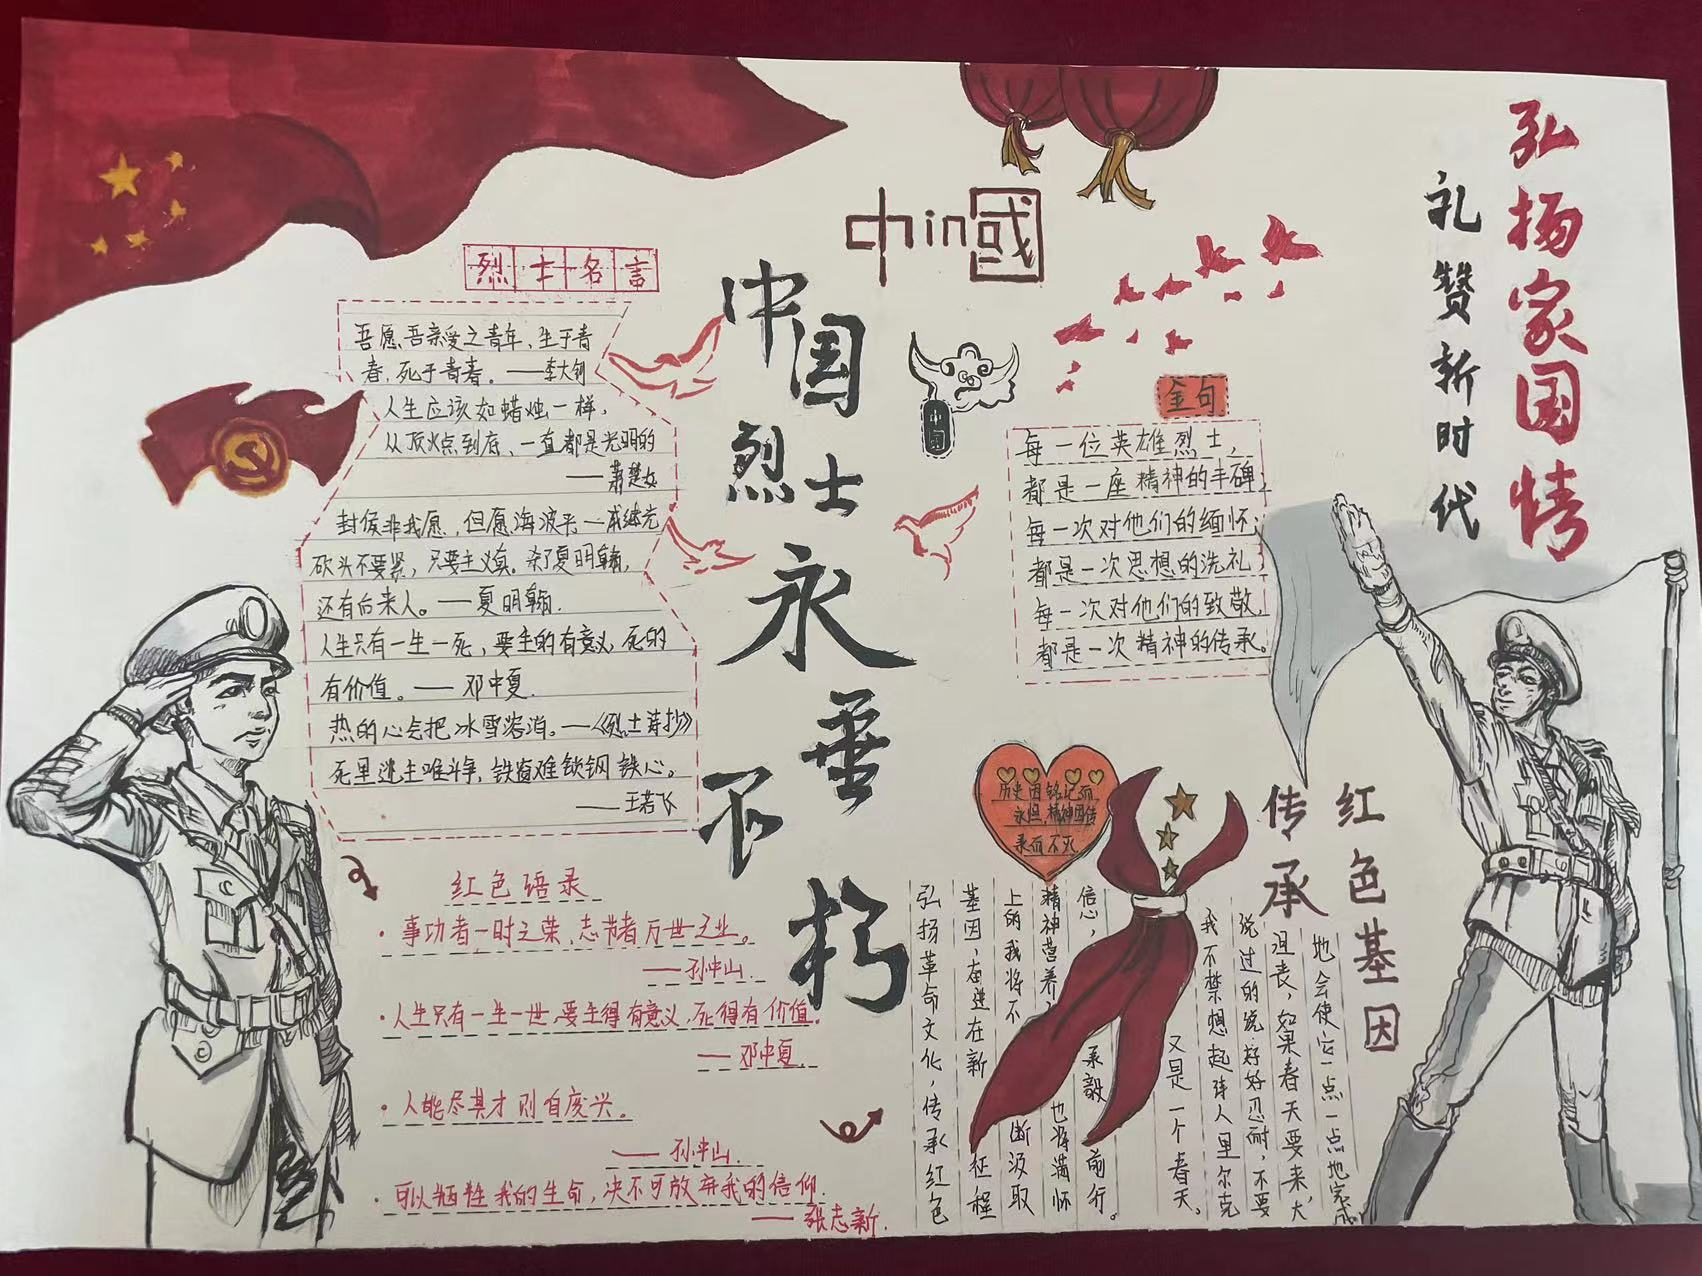 弘扬家国情
礼赞新时代
中hin國
中国
烈士
永垂
不朽
烈士名言
吾愿吾亲爱之青年，生于青
春，死于青春。——李大钊
人生应该如蜡烛一样，
从顶燃点到底，一直都是光明的
——萧楚女
封侯非我愿，但愿海波平——戚继光
砍头不要紧，只要主义真。杀了夏明翰，
还有后来人。——夏明翰.
人生只有一生一死，要生的有意义，死的
有价值。——邓中夏.
热的心会把冰雪溶消。——《烈士诗抄》
死里逃生唯斗争，铁窗难锁钢铁心。
——王若飞
中国
金句
每一位英雄烈士，
都是一座精神的丰碑；
每一次对他们的缅怀；
都是一次思想的洗礼；
每一次对他们的致敬，
都是一次精神的传承。
红色语录
·事功者一时之荣、志节者万世之业。
——孙中山.
·人生只有一生一世，要生得有意义，死得有价值。
——邓中夏.
·人能尽其才则百废兴。
——孙中山.
·可以牺牲我的生命，决不可放弃我的信仰.
——张志新.
历史因铭记而
永恒，精神因传
承而不灭
红色基因
传承
地会使它一点一点地完成
沮丧，如果春天要来，大
说过的统：好好忍耐，不要
我不禁想起诗人里尔克
又是一个春天。
信心， 承毅 前行。
精神营养， 也将满怀
上的我将不 断汲取
基因，奋进在新 征程
弘扬革命文化，传承红色